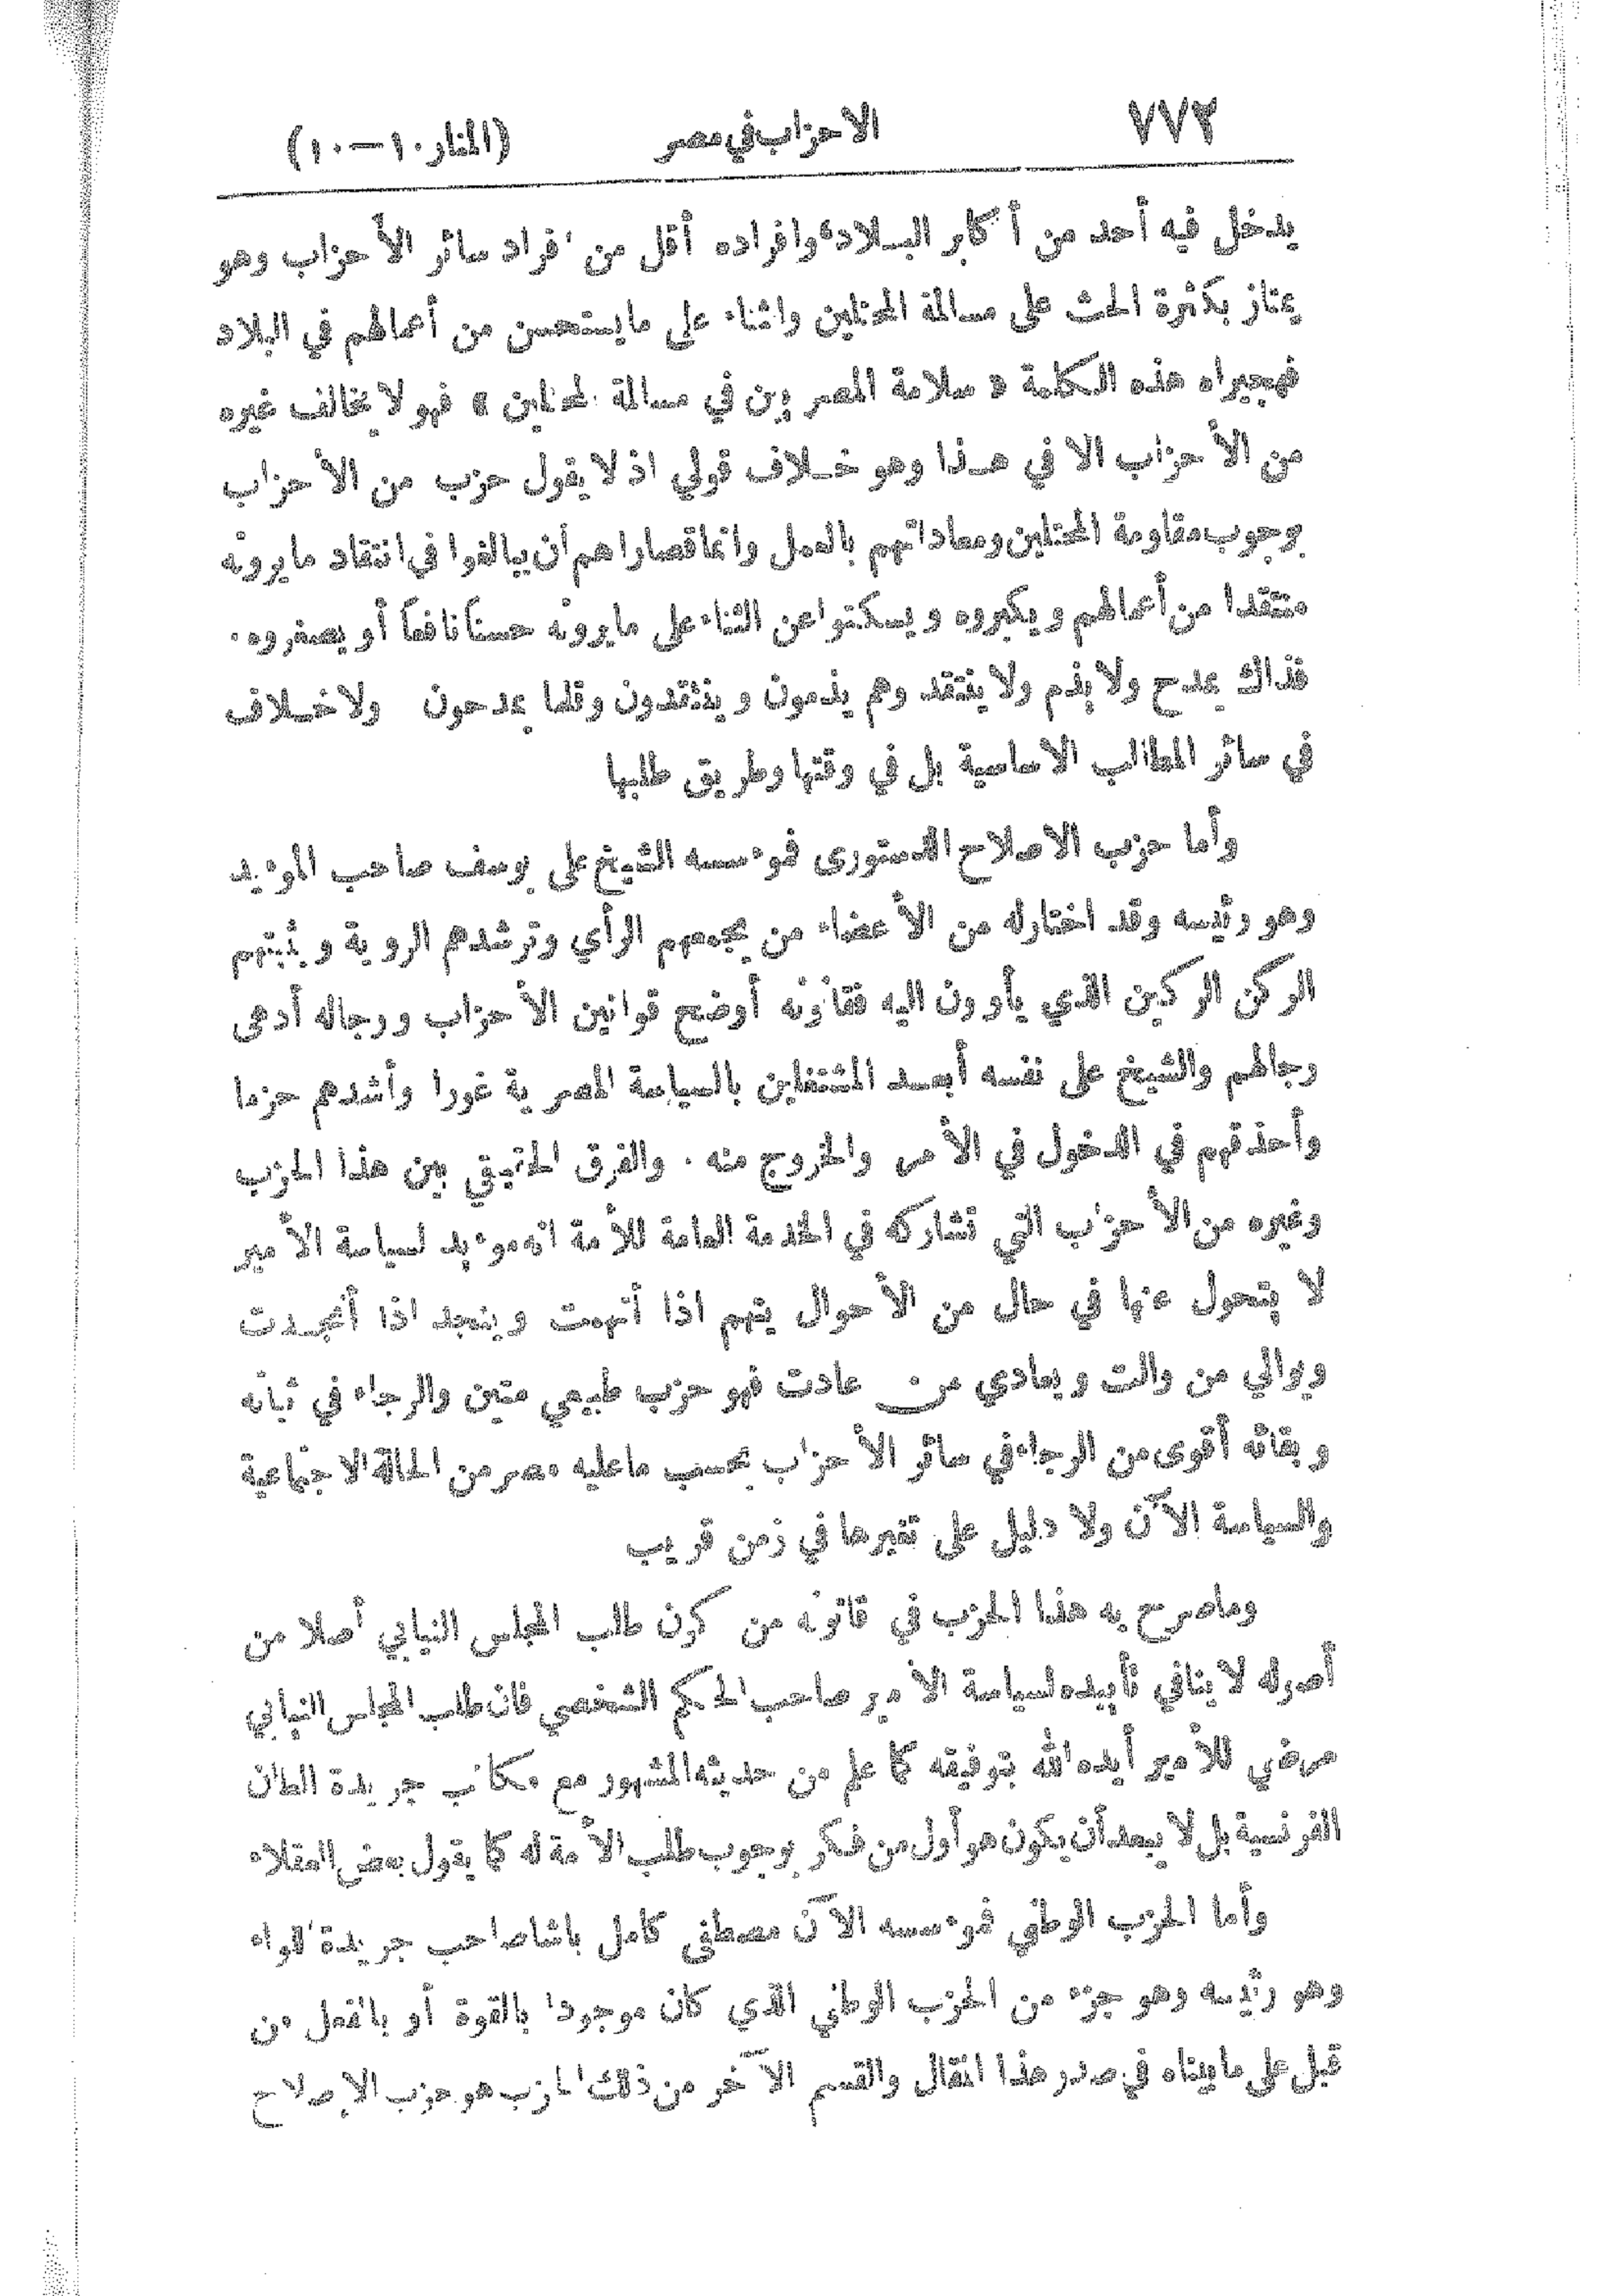 ٧٧٢ الاحزاب في مصر (المنار ١٠—١٠)
يدخل فيه أحد من أكابر البلاد وافراده أقل من افراد سائر الأحزاب وهو
يمتاز بكثرة الحث على مسالمة المحتلين واثناء على مايستحسن من أعمالهم في البلاد
فهجيراه هذه الكلمة « سلامة المصريين في مسالمة المحتلين » فهو لا يخالف غيره
من الأحزاب الا في هذا وهو خلاف قولي اذ لا يقول حزب من الأحزاب
بوجوب مقاومة المحتلين ومعاداتهم بالعمل وانما قصاراهم أن يبالغوا في انتقاد ما يرونه
منتقدا من أعمالهم ويكبروه ويسكتوا عن الثناء على مايرونه حسناً نافعاً أو يصغروه ٠
فذاك يمدح ولا يذم ولا ينتقد وهم يذمون وينتقدون وقلما يمدحون ولا خلاف
في سائر المطالب الاساسية بل في وقتها وطريق طلبها
وأما حزب الاصلاح الدستورى فموءسسه الشيخ على يوسف صاحب الموءيد
وهو رئيسه وقد اختار له من الأعضاء من يجمعهم الرأي وترشدهم الروية ويثبتهم
الركن الركين الذي يأوون اليه فقانونه أوضح قوانين الأحزاب ورجاله أدهى
رجالهم والشيخ على نفسه أبعد المشتغلين بالسياسة المصرية غورا وأشدهم حزما
وأحذقهم في الدخول في الأمر والخروج منه ٠ والفرق الحقيقي بين هذا الحزب
وغيره من الأحزاب التي تشاركه في الخدمة العامة للأمة انه موءيد لسياسة الأمير
لا يتحول عنها في حال من الأحوال يتهم اذا أتهمت وينجد اذا أنجدت
ويوالي من والت ويعادي من عادت فهو حزب طبيعي متين والرجاء في ثباته
وبقائه أقوى من الرجاء في سائر الأحزاب بحسب ماعليه مصر من الحالة الاجتماعية
والسياسة الآن ولا دليل على تغيرها في زمن قريب
وماصرح به هذا الحزب في قانونه من كون طلب المجلس النيابي أصلا من
أصوله لا ينافي تأييده لسياسة الأمير صاحب الحكم الشخصي فان طلب المجلس النيابي
مرضي للأمير أيده الله بتوفيقه كما علم من حديثه المشهور مع مكاتب جريدة الطان
الفرنسية بل لا يبعد أن يكون هو أول من فكر بوجوب طلب الأمة له كما يقول بعض العقلاء
وأما الحزب الوطني فموءسسه الآن مصطفى كامل باشا صاحب جريدة اللواء
وهو رئيسه وهو جزء من الحزب الوطني الذي كان موجودا بالقوة أو بالفعل من
قبل على مابيناه في صدر هذا المقال والقسم الآخر من ذلك الحزب هو حزب الإصلاح